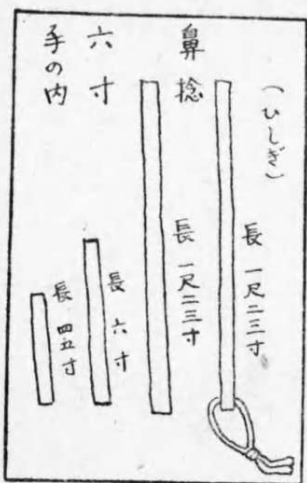 (ひしぎ)
長 一尺二三寸
鼻捻
長 一尺二三寸
六寸
長 六寸
手の内
長 四五寸